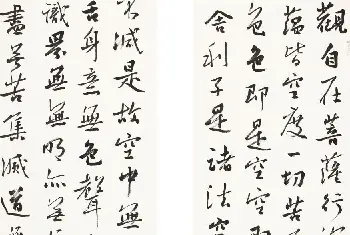 觀自在菩薩行
蘊皆空度一切苦
色色即是空空即
舍利子是諸法空
不減是故空中無
舌身意無色聲
識界無無明亦無
盡無苦集滅道